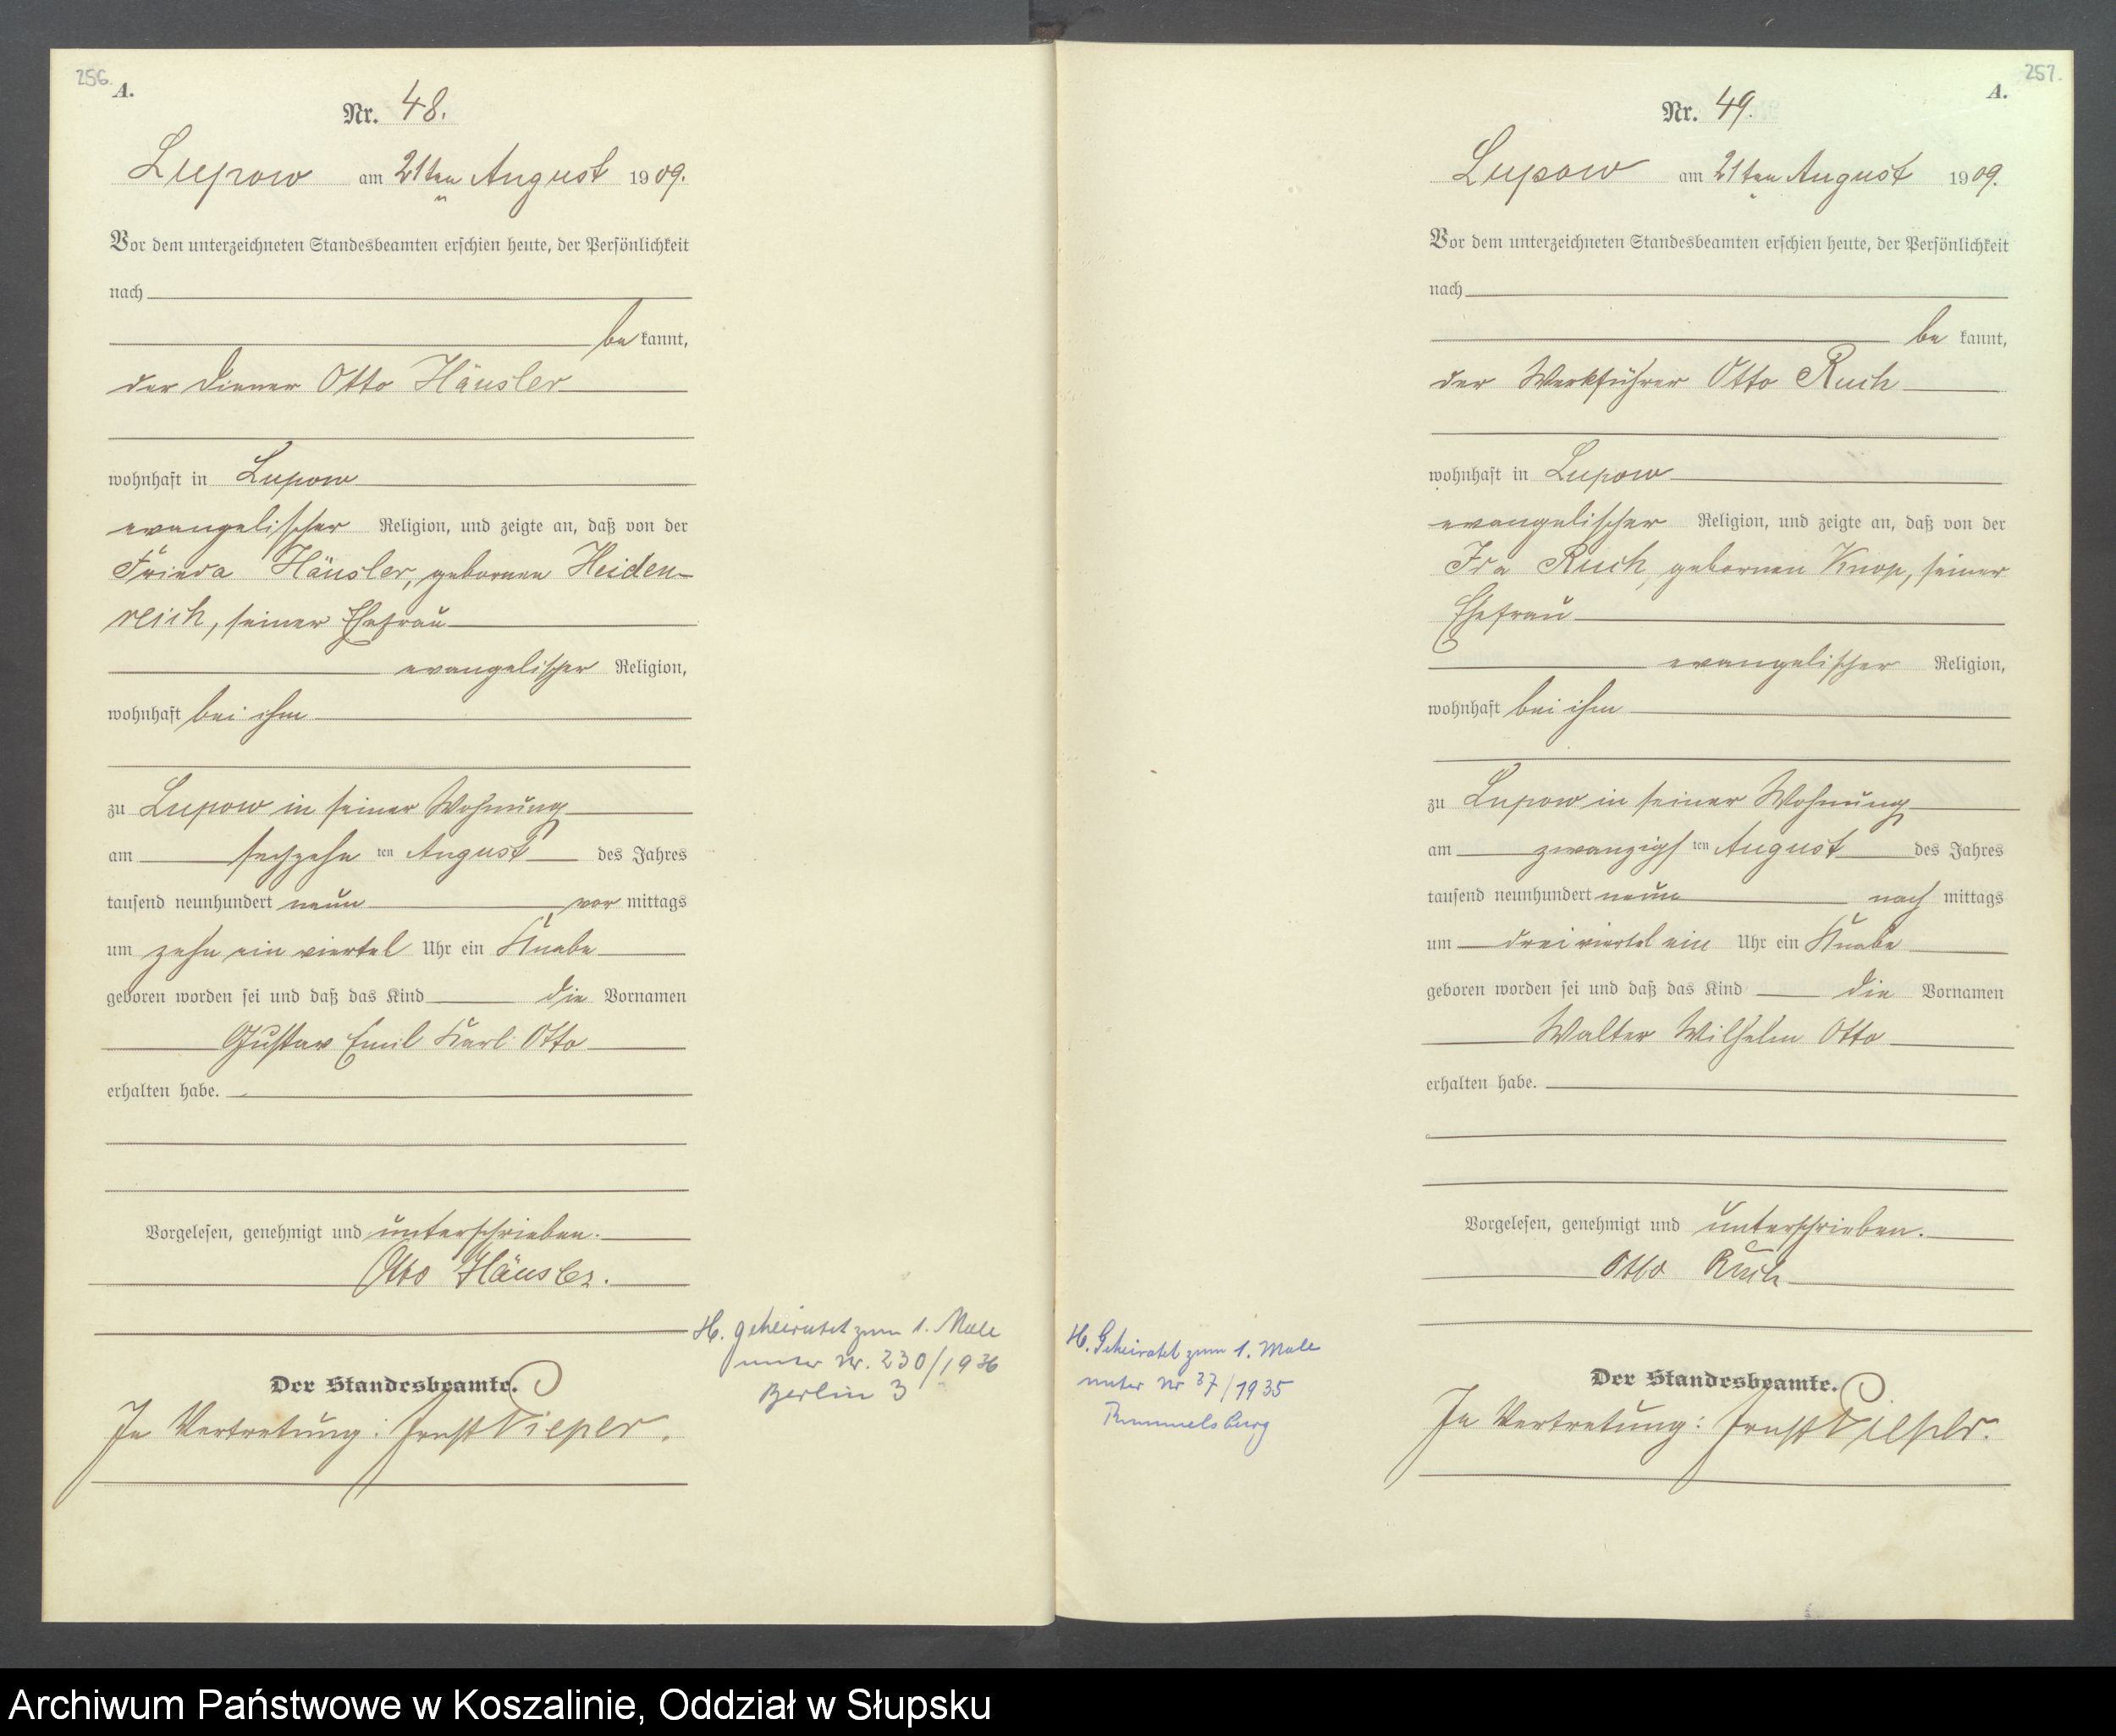 256.
A.
Nr. 48.
Lupow am 21ten August 1909.
Vor dem unterzeichneten Standesbeamten erschien heute, der Persönlichkeit
nach
be kannt,
der Diener Otto Häusler
wohnhaft in Lupow
evangelischer Religion, und zeigte an, daß von der
Frieda Häusler, gebornen Heiden-
reich, seiner Ehefrau
evangelischer Religion,
wohnhaft bei ihm
zu Lupow in seiner Wohnung
am sechzehn ten August des Jahres
tausend neunhundert neun vor mittags
um zehn ein viertel Uhr ein Knabe
geboren worden sei und daß das Kind die Vornamen
Gustav Emil Karl Otto
erhalten habe.
Vorgelesen, genehmigt und unterschrieben.
Otto Häusler.
Der Standesbeamte.
In Vertretung: Ernst Pieper.
H. geheiratet zum 1. Male
unter Nr. 230/1936
Berlin 3
257.
A.
Nr. 49.
Lupow am 21ten August 1909.
Vor dem unterzeichneten Standesbeamten erschien heute, der Persönlichkeit
nach
be kannt,
der Werkführer Otto Ruch
wohnhaft in Lupow
evangelischer Religion, und zeigte an, daß von der
Ida Ruch, gebornen Knop, seiner
Ehefrau
evangelischer Religion,
wohnhaft bei ihm
zu Lupow in seiner Wohnung
am zwanzigs ten August des Jahres
tausend neunhundert neun nach mittags
um drei viertel ein Uhr ein Knabe
geboren worden sei und daß das Kind die Vornamen
Walter Wilhelm Otto
erhalten habe.
Vorgelesen, genehmigt und unterschrieben.
Otto Ruch
Der Standesbeamte.
In Vertretung: Ernst Pieper.
H. Geheiratet zum 1. Male
unter Nr 37/1935
Rummelsburg
Archiwum Państwowe w Koszalinie, Oddział w Słupsku